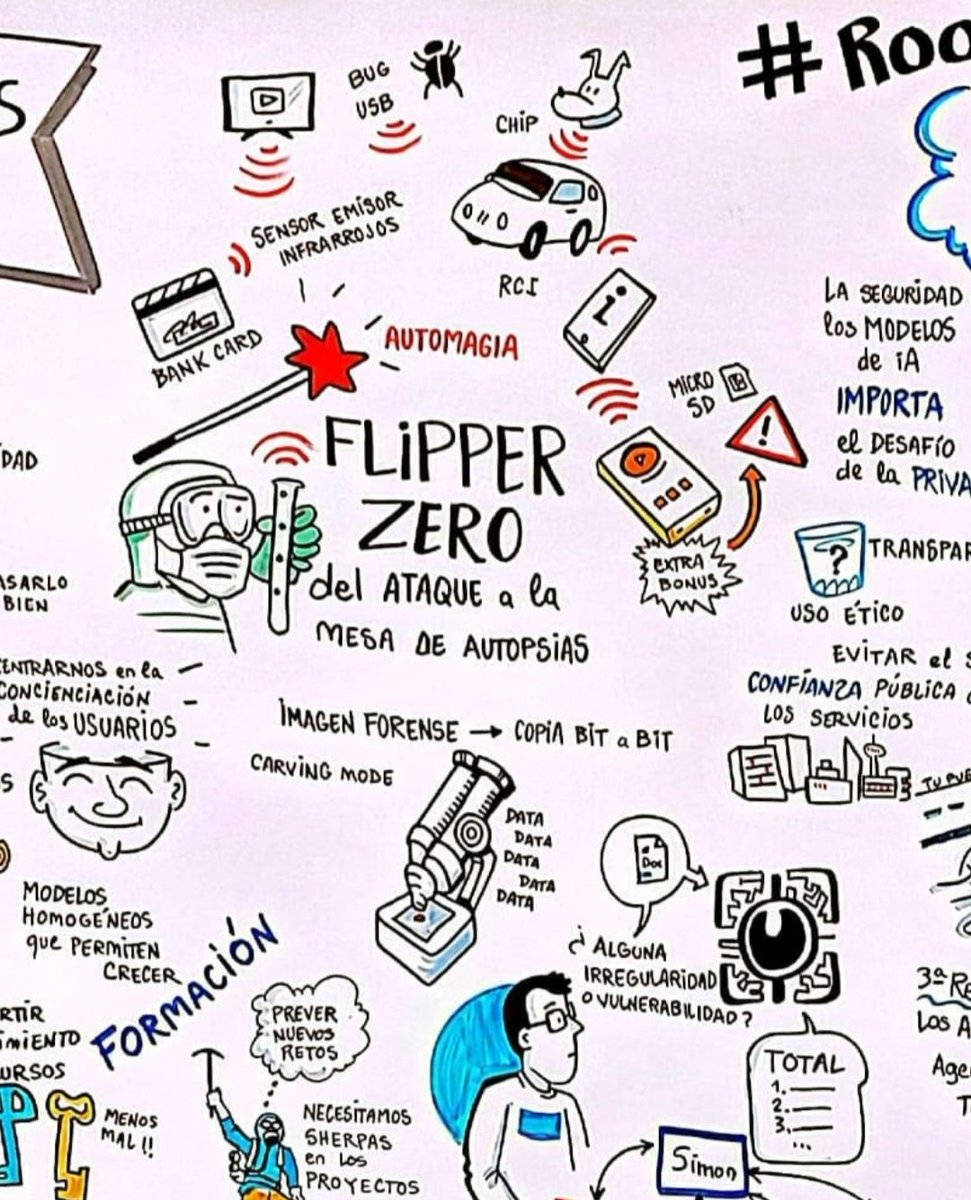 #Roo
S
BUG
USB
CHIP
SENSOR EMISOR
INFRARROJOS
RCI
BANK CARD
AUTOMAGIA
MICRO
SD
FLIPPER
ZERO
del ATAQUE a la
MESA DE AUTOPSIAS
EXTRA
BONUS
!
LA SEGURIDAD
los MODELOS
de iA
IMPORTA
el DESAFÍO
de la PRIVA
?
TRANSPAR
USO ÉTICO
EVITAR el S
CONFIANZA PÚBLICA
LOS SERVICIOS
DAD
ASARLO
BIEN
ENTRARNOS en la
CONCIENCIACIÓN
de los USUARIOS
S
IMAGEN FORENSE → COPIA BIT a BIT
CARVING MODE
DATA
DATA
DATA
DATA
DATA
MODELOS
HOMOGÉNEOS
que PERMITEN
CRECER
FORMACIÓN
RTIR
IMIENTO
URSOS
MENOS
MAL!!
PREVER
NUEVOS
RETOS
NECESITAMOS
SHERPAS
en los
PROYECTOS
Doc
¿ALGUNA
IRREGULARIDAD
o VULNERABILIDAD?
TOTAL
1.
2.
3.
...
Simon
3ª RE
Los A
Age
T